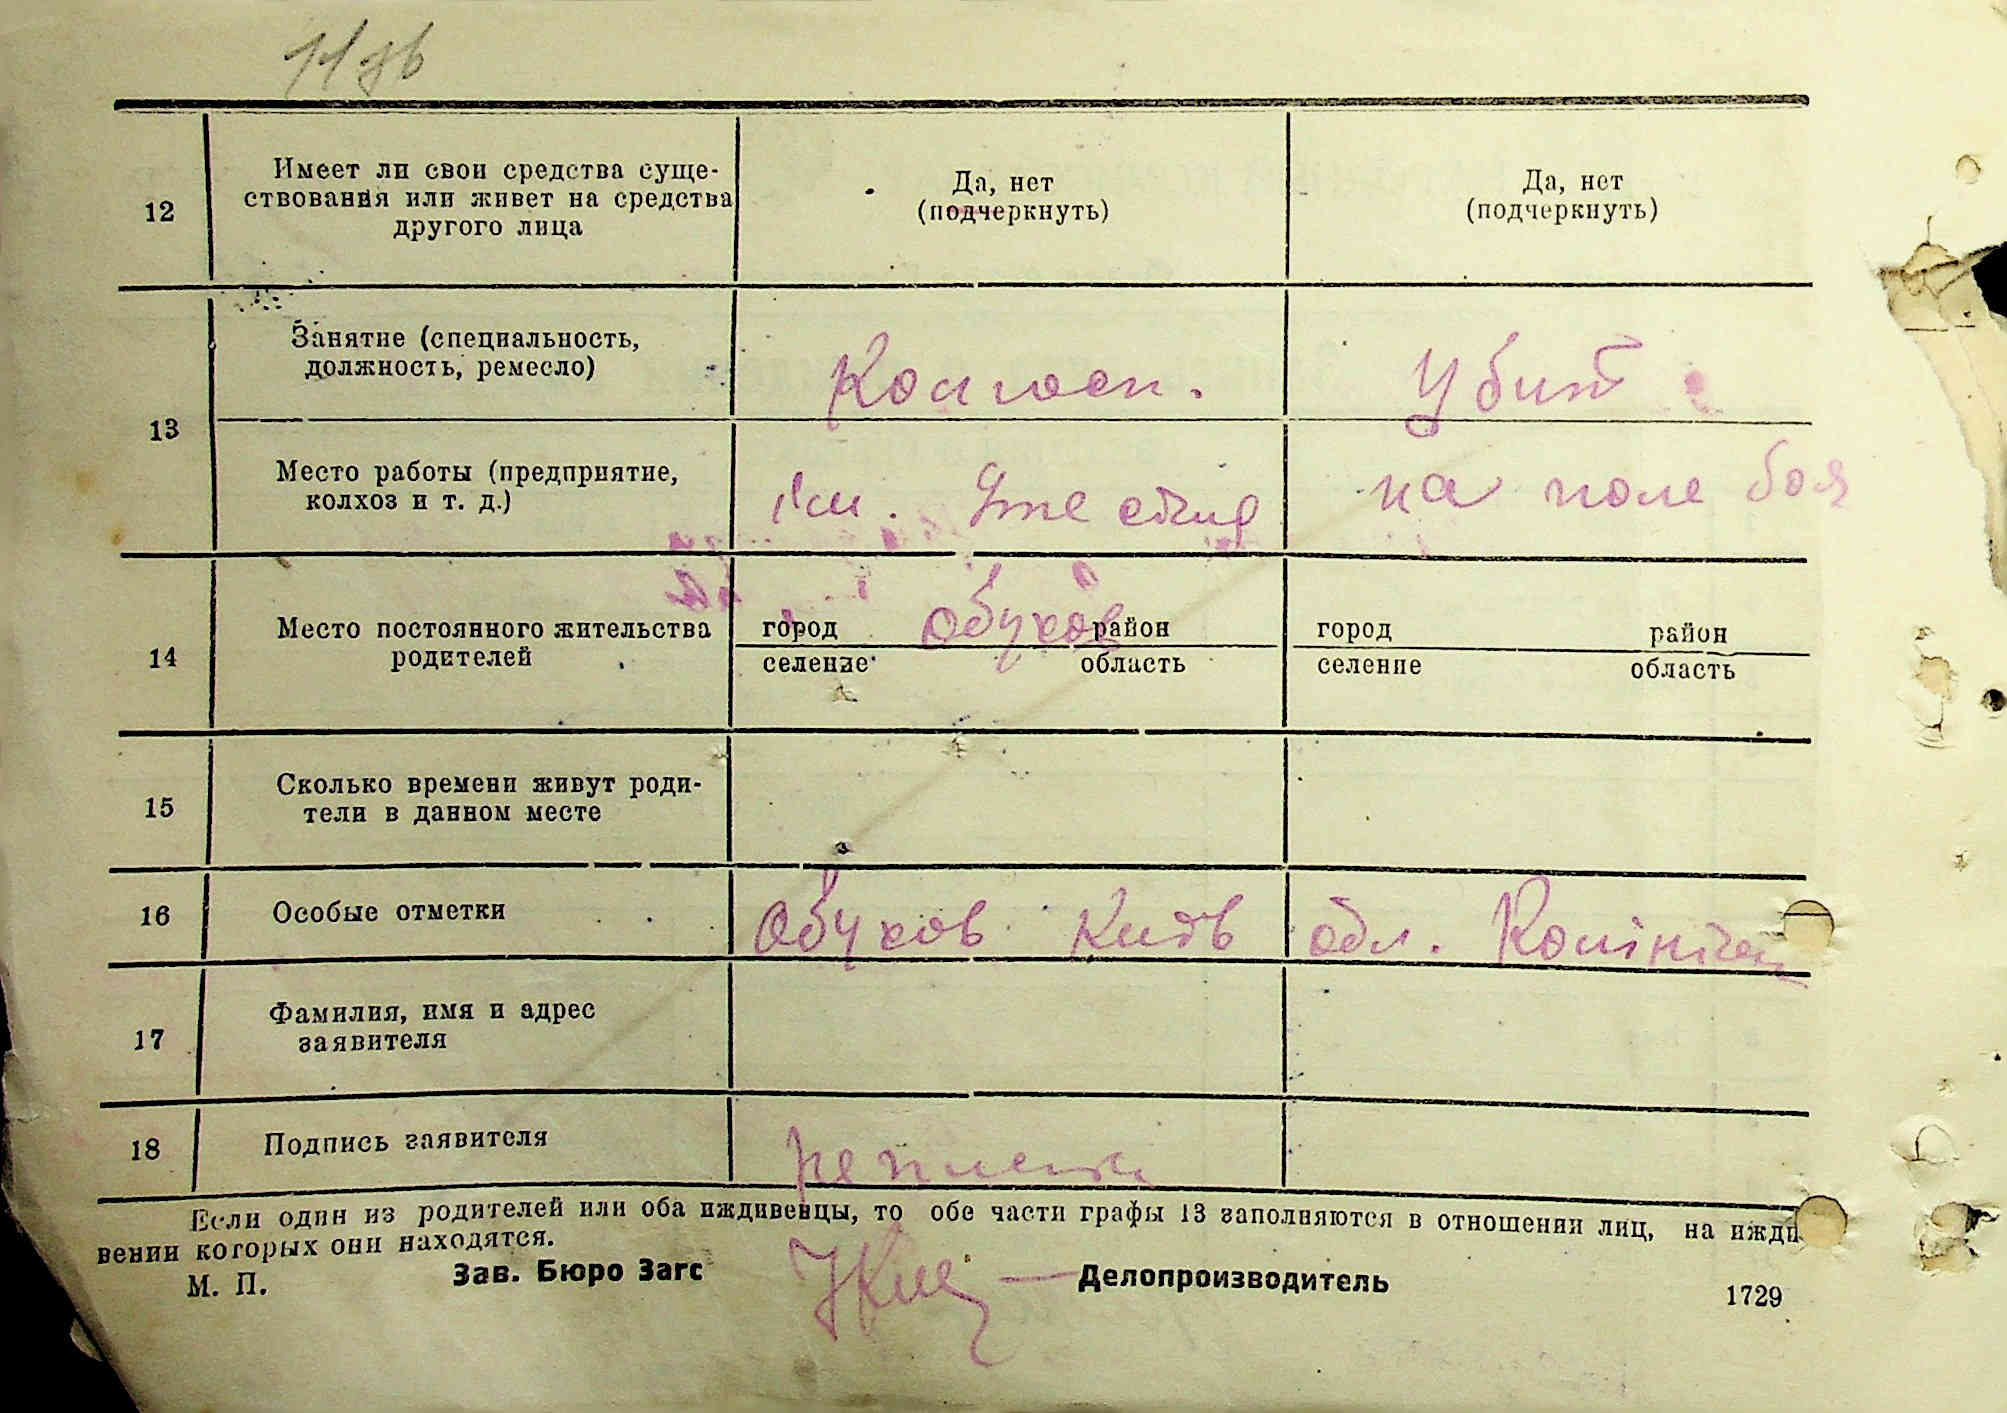 12
Имеет ли свои средства суще-
ствования или живет на средства
другого лица
Да, нет
(подчеркнуть)
Да, нет
(подчеркнуть)
13
Занятие (специальность,
должность, ремесло)
Убит
Место работы (предприятие,
колхоз и т. д.)
на поле боя
14
Место постоянного жительства
родителей
город Обухов район
селение область
город район
селение область
15
Сколько времени живут роди-
тели в данном месте
16
Особые отметки
Обухов Киев обл.
17
Фамилия, имя и адрес
заявителя
18
Подпись заявителя
Если один из родителей или оба иждивенцы, то обе части графы 13 заполняются в отношении лиц, на ижди
вении которых они находятся.
М. П. Зав. Бюро Загс Делопроизводитель
1729